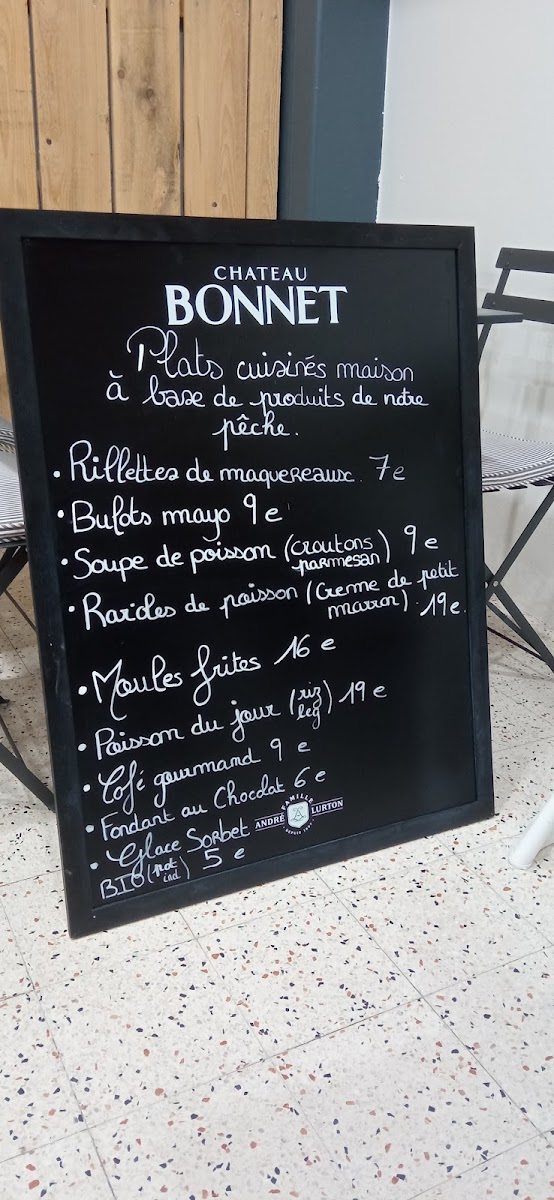 CHATEAU
BONNET
Plats cuisinés maison
à base de produits de notre
pêche.
• Rillettes de maquereaux. 7e
• Bulots mayo 9e
• Soupe de poisson (croutons parmesan) 9e
• Ravioles de poisson (Creme de petit
marron). 19e.
• Moules frites 16e
• Poisson du jour (riz leg) 19e
• Café gourmand 9e
• Fondant au Chocolat 6e
• Glace Sorbet
BIO (pot ind) 5e
FAMILLE
ANDRÉ LURTON